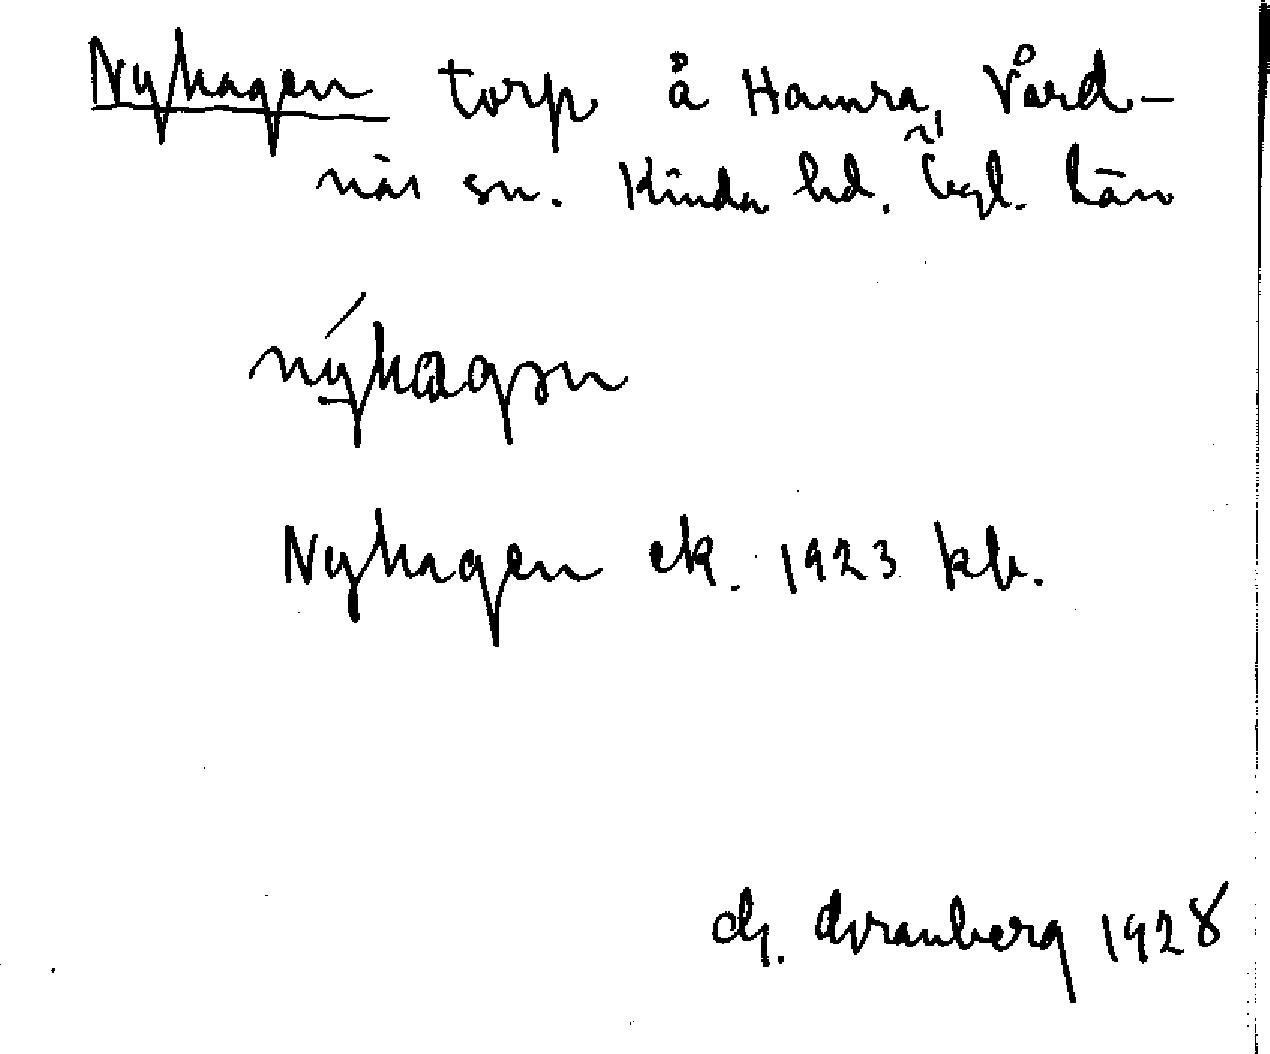 Nyhagen torp å Hamra, Vård-
näs sn. Kinda hd. Ögl. län
nýhagən
Nyhagen ek. 1923 kb.
G. Granberg 1928